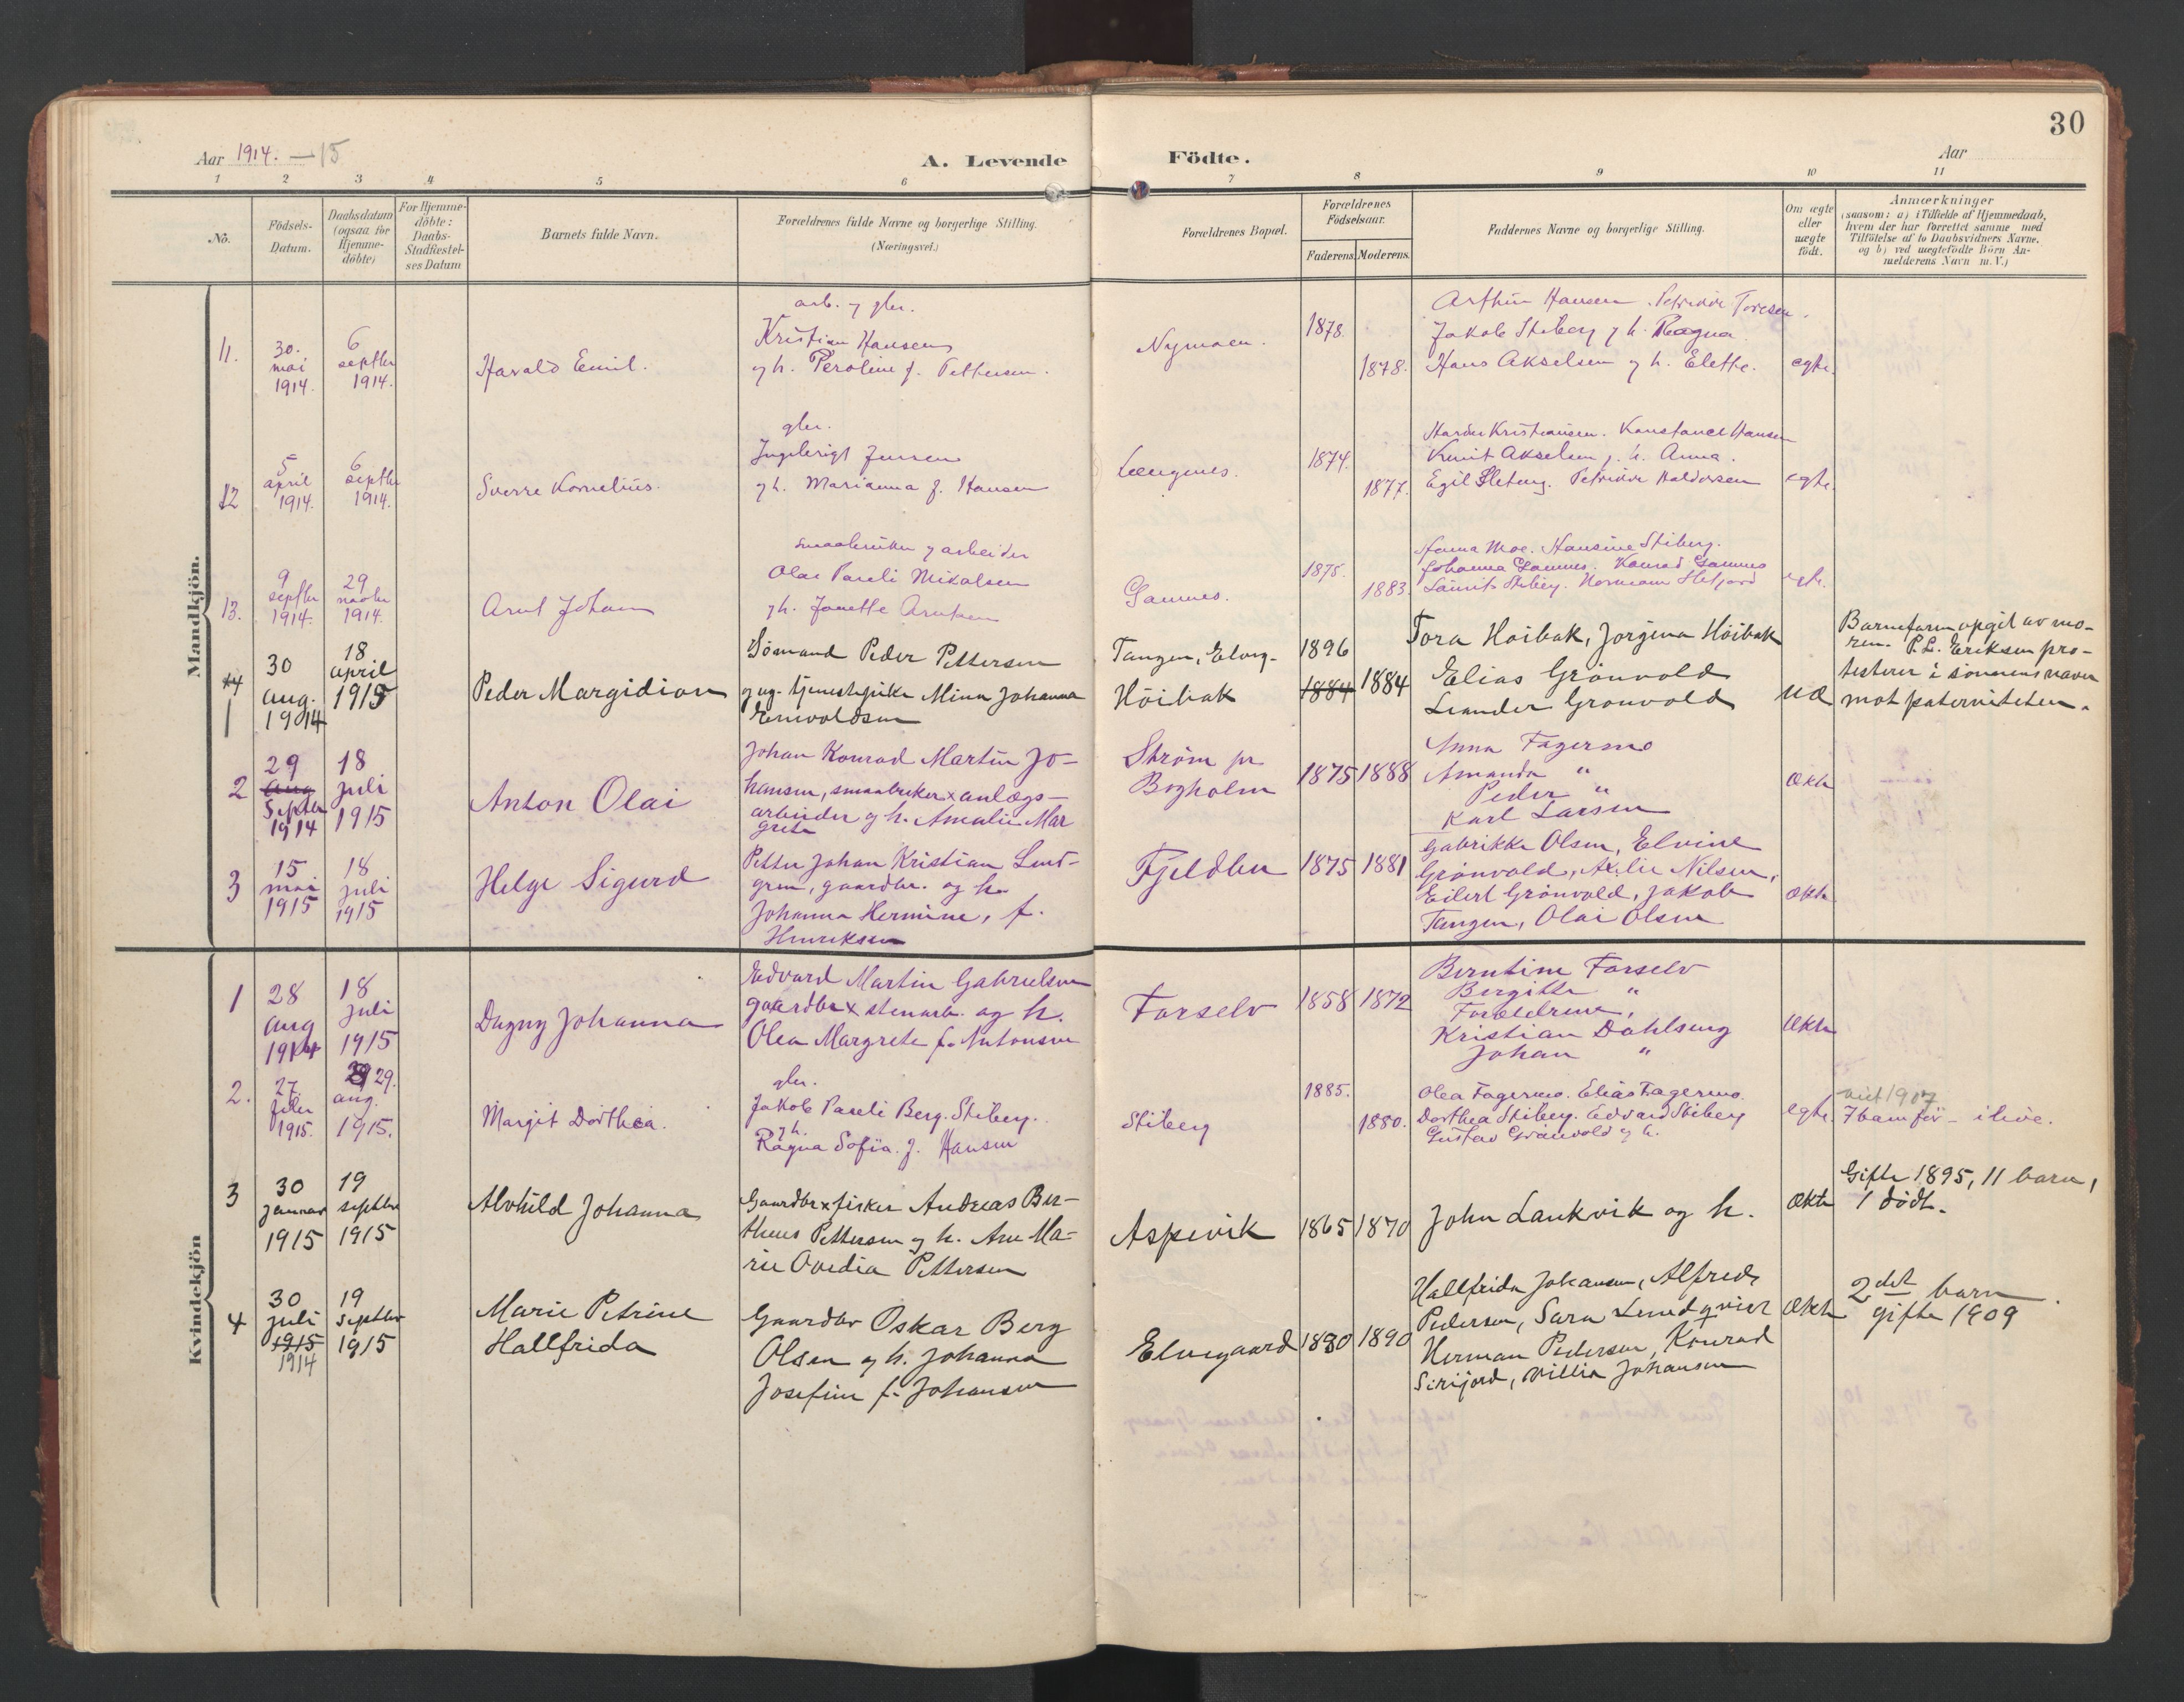 30
Aar 1914. —15
A. Levende
Födte.
Aar
1 2 3 4 5 6 7 8 9 10 11
No.
Födsels-
Datum.
Daabsdatum
(ogsaa for
Hjemme-
döbte)
For Hjemme-
döbte:
Daabs-
Stadfæstel-
ses Datum
Barnets fulde Navn.
Forældrenes fulde Navne og borgerlige Stilling.
(Næringsvei.)
Forældrenes Bopæl.
Forældrenes
Födselsaar.
Faderens.
Moderens.
Faddernes Navne og borgerlige Stilling.
Om ægte
eller
uægte
født.
Anmærkninger
(saasom: a) i Tilfælde af Hjemmedaab,
hvem der har forrettet samme med
Tilföielse af to Daabsvidners Navne.
og b) ved uægtefödte Börn An-
melderens Navn m. V.)
Mandkjön.
11.
30.
mai
1914.
6
septbr
1914.
Harald Emil.
arb. g gbr.
Kristian Hansen
g h. Peroline f. Pettersen.
Nymoen.
1878.
1878.
Arthur Hansen. Petrikke Toresen.
Jakob Stiberg g h. Ragna
Hans Akselsen g h. Elette.
egte.
12
5
april
1914.
6
septbr
1914.
Sverre Kornelius.
gbr.
Ingebrigt Jensen
g h. Marianna f. Hansen
Længenes.
1874.
1877.
Harder Kristiansen. Konstance Hansen
Knut Akselsen g. h. Anna.
Egil Sletteng. Petrikke Haldorsen
egte.
13.
9
septbr
1914.
29
novbr
1914.
Arnt Johan
smaabruker g arbeider
Olai Pareli Mikalsen
g h. Janette Arntsen
Gamnes.
1875.
1883.
Anna Moe. Hansine Stiberg.
Johanna Gamnes. Konrad Gamnes
Laurits Stiberg. Normann Slefjord
egte.
14
1
30
aug.
1914
18
april
1915
Peder Margidion
Sömand Peder Pettersen
og ug. tjenestepike Mina Johanna
Enevoldsen
Tangen, Elveg-
Höibak
1896
1884
1884
Tora Höibak, Jorgina Höibak
Elias Grönvold
Leander Grönvold
uæ
Barnefaren opgit av mo-
ren. P.L. Eriksen pro-
testerer i sönnens navn
mot paterniteten.
2
29
aug
Septbr
1914
18
juli
1915
Anton Olai
Johan Konrad Martin Jo-
hansen, smaabruker x anlægs-
arbeider og h. Amalie Mar
grete
Ström pr
Bogholm
1875
1888
Anna Fagermo
Amanda "
Peder "
Karl Larsen
Ækte
3
15
mai
1915
18
juli
1915
Helge Sigurd
Petter Johan Kristian Lind-
gren, gaardbr. og h.
Johanna Hermine, f.
Henriksen
Fjeldbu
1875
1881
Gabrikke Olsen, Elvine
Grönvold, Axelie Nilsen,
Eilert Grönvold, Jakob
Tangen, Olai Olsen
Ækte
Kvindekjön
1
28
aug
1914
18
juli
1915
Dagny Johanna
Edvard Martin Gabrielsen
gaardbr x stenarb. og h.
Olea Margrete f. Antonsen
Forselv
1858
1872
Berntine Forselv
Bergitte "
Foreldrene,
Kristian Dahlseng
Johan "
Ækte
2.
27
febr
1915.
29.
aug.
1915.
Margit Dorthea.
gbr.
Jakob Pareli Berg. Stiberg.
g h.
Ragna Sofia. f. Hansen
Stiberg
1885.
1880.
Olea Fagermo. Elias Fagermo.
Dorthea Stiberg. Edvard Stiberg
Gustav Grönvold g h.
egte.
viet 1907
7 barn før - i live.
3
30
januar
1915
19
septbr
1915
Alvhild Johanna
Gaardbr x fisker Andreas Ber-
theus Pettersen g h. Ane Ma-
rie Ovedia Pettersen
Aspevik
1865
1870
John Lankvik og h.
Ækte
Gifte 1895, 11 barn,
1 dödt.
4
30
juli
1915
1914
19
septbr
1915
Marie Petrine
Hallfrida
Gaardbr Oskar Berg
Olsen g h. Johanna
Josefine f. Johansen
Elvegaard
1880
1890
Hallfrida Johansen, Alfred
Pedersen, Sara Lundqvist
Herman Pedersen, Konrad
Sirijord, Villia Johansen
Ækte
2det barn.
gifte 1909